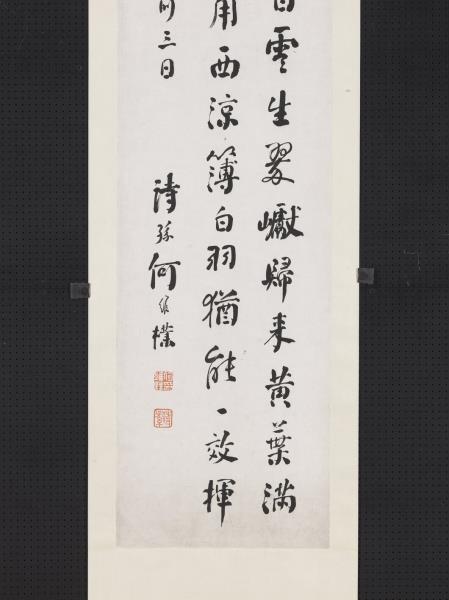 白雲生翠巘歸來黃葉滿
用西涼簿白羽猶能一效揮
三日
詩孫何維樸